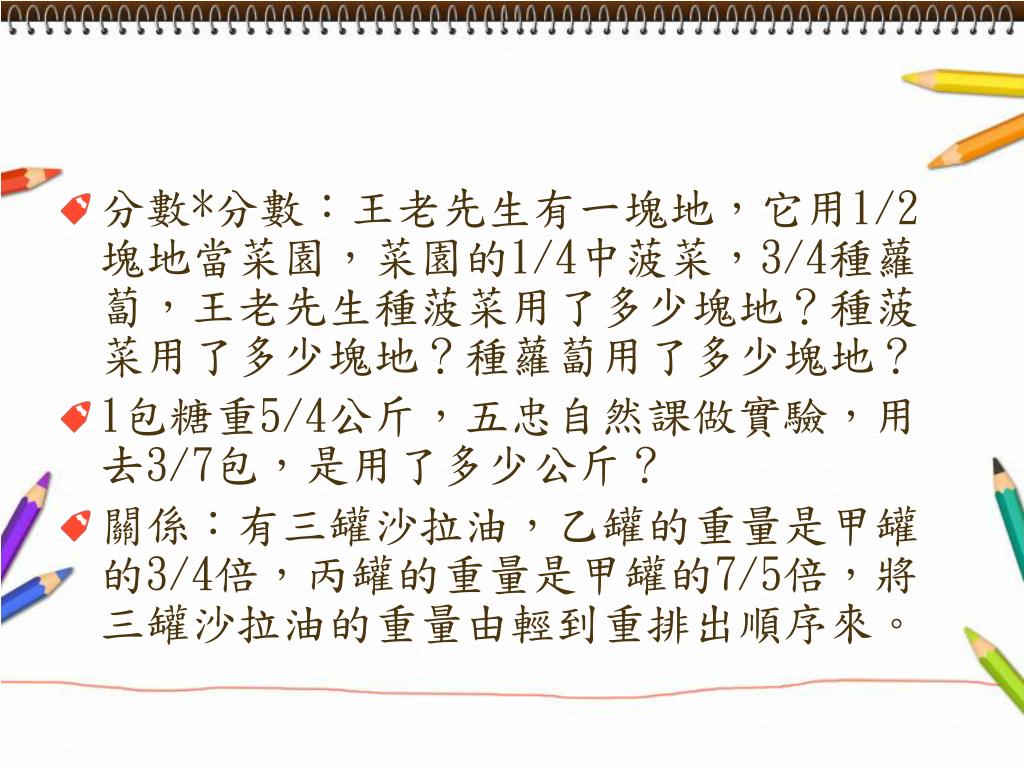 分數*分數：王老先生有一塊地，它用1/2
塊地當菜園，菜園的1/4中菠菜，3/4種蘿
蔔，王老先生種菠菜用了多少塊地？種菠
菜用了多少塊地？種蘿蔔用了多少塊地？
1包糖重5/4公斤，五忠自然課做實驗，用
去3/7包，是用了多少公斤？
關係：有三罐沙拉油，乙罐的重量是甲罐
的3/4倍，丙罐的重量是甲罐的7/5倍，將
三罐沙拉油的重量由輕到重排出順序來。